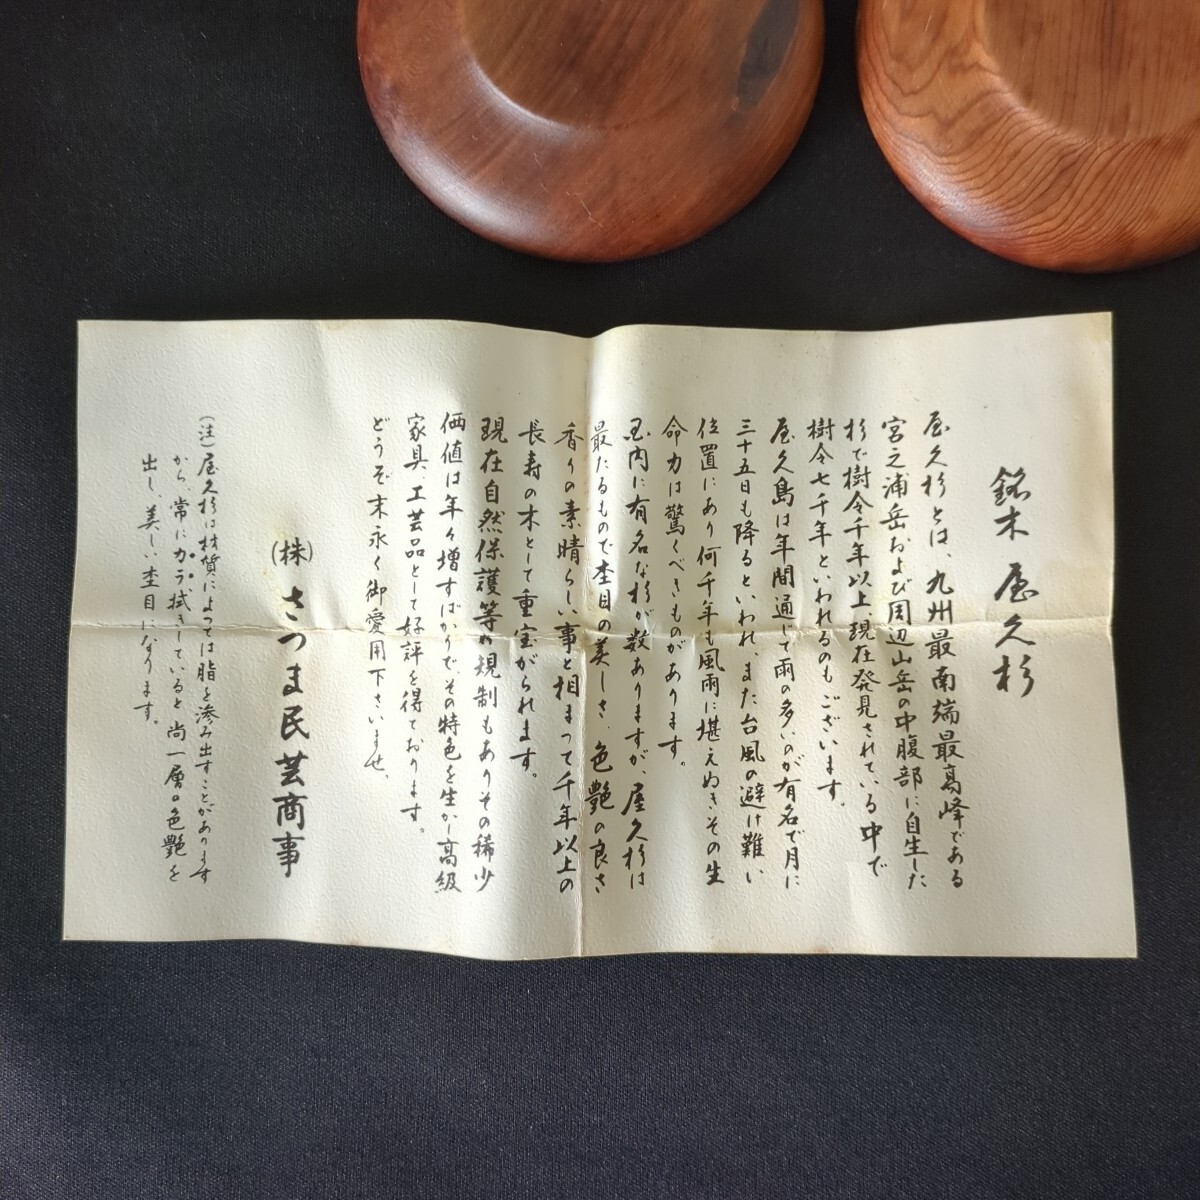 銘木 屋久杉
屋久杉とは、九州最南端最高峰である
宮之浦岳および周辺山岳の中腹部に自生した
杉で樹令千年以上、現在発見されている中で
樹令七千年といわれるのもございます。
屋久島は年間通じて雨の多いのが有名で月に
三十五日も降るといわれ、また台風の避け難い
位置にあり何千年も風雨に堪えぬき、その生
命力は驚くべきものがあります。
国内に有名な杉が数ありますが、屋久杉は
最たるもので杢目の美しさ、色艶の良さ
香りの素晴らしい事と相まって千年以上の
長寿の木として重宝がられます。
現在自然保護等の規制もありその稀少
価値は年々増すばかりで、その特色を生かし高級
家具、工芸品として好評を得ております。
どうぞ末永く御愛用下さいませ、
(株) さつま民芸商事
(注) 屋久杉は材質によっては脂を滲み出すことがあります
から、常にカラ拭きしていると尚一層の色艶を
出し、美しい杢目になります。